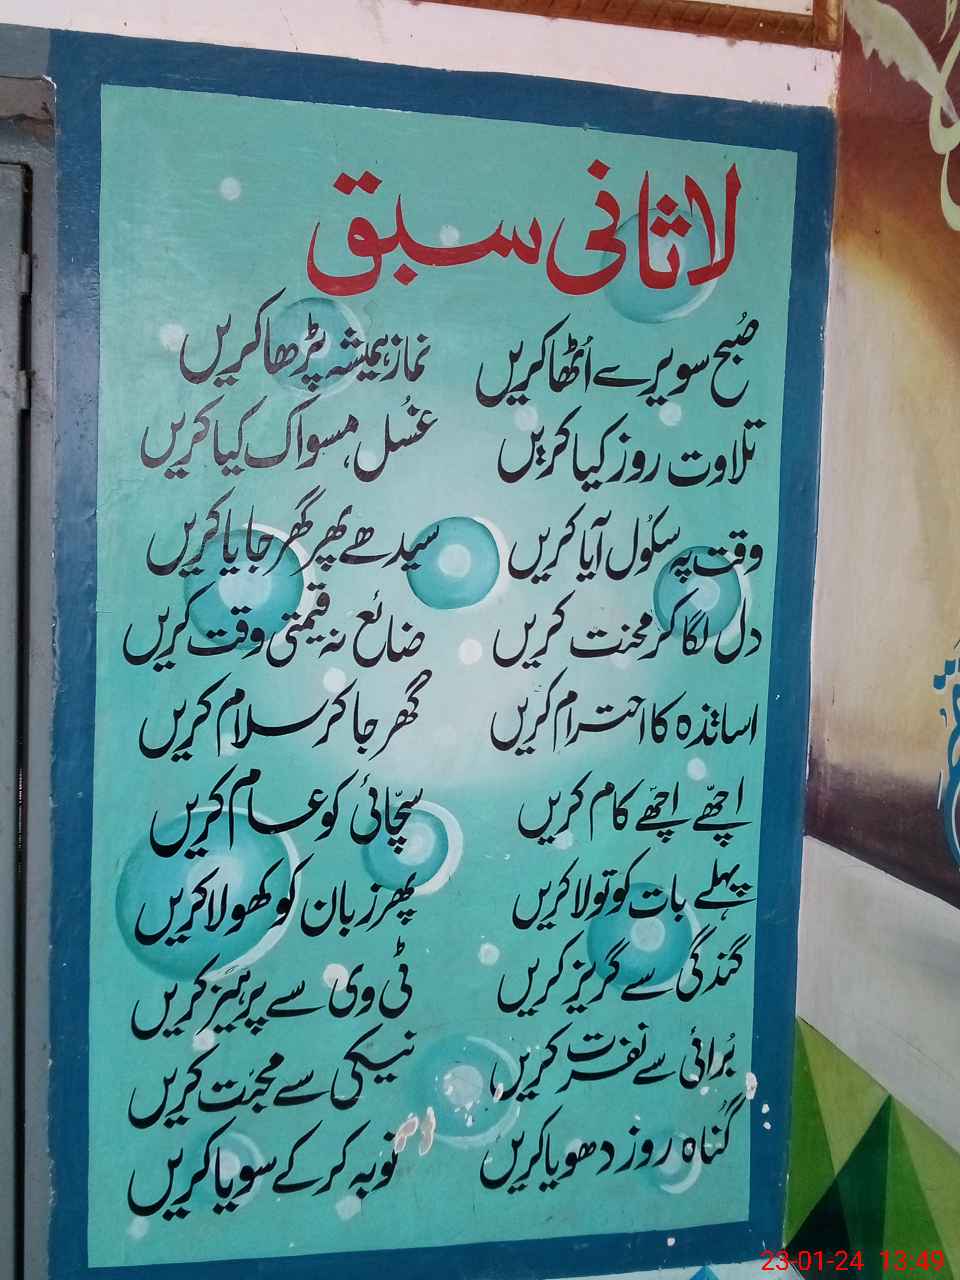 لاثانی سبق
صُبح سویرے اُٹھا کریں نماز ہمیشہ پڑھا کریں
تلاوت روز کیا کریں غُسل، مسواک کیا کریں
وقت پہ سکُول آیا کریں سیدھے پھر گھر جایا کریں
دل لگا کر محنت کریں ضائع نہ قیمتی وقت کریں
اساتذہ کا احترام کریں گھر جا کر سلام کریں
اچھّے اچھّے کام کریں سچّائی کو عام کریں
پہلے بات کو تولا کریں پھر زبان کو کھولا کریں
گندگی سے گریز کریں ٹی وی سے پرہیز کریں
بُرائی سے نفرت کریں نیکی سے محبّت کریں
گُناہ روز دھویا کریں توبہ کر کے سویا کریں
23-01-24 13:49